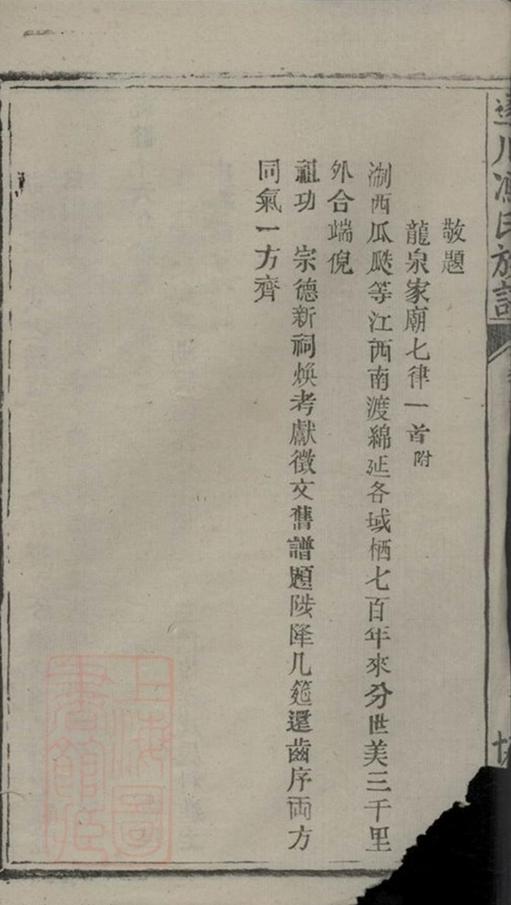 馮氏族譜
敬題
龍泉家廟七律一首附
淛西瓜瓞等江西南渡綿延各域栖七百年來分世美三千里
外合端倪
祖功　宗德新祠煥考獻徵文舊譜題陟降几筵還齒序兩方
同氣一方齊
上海圖書館藏